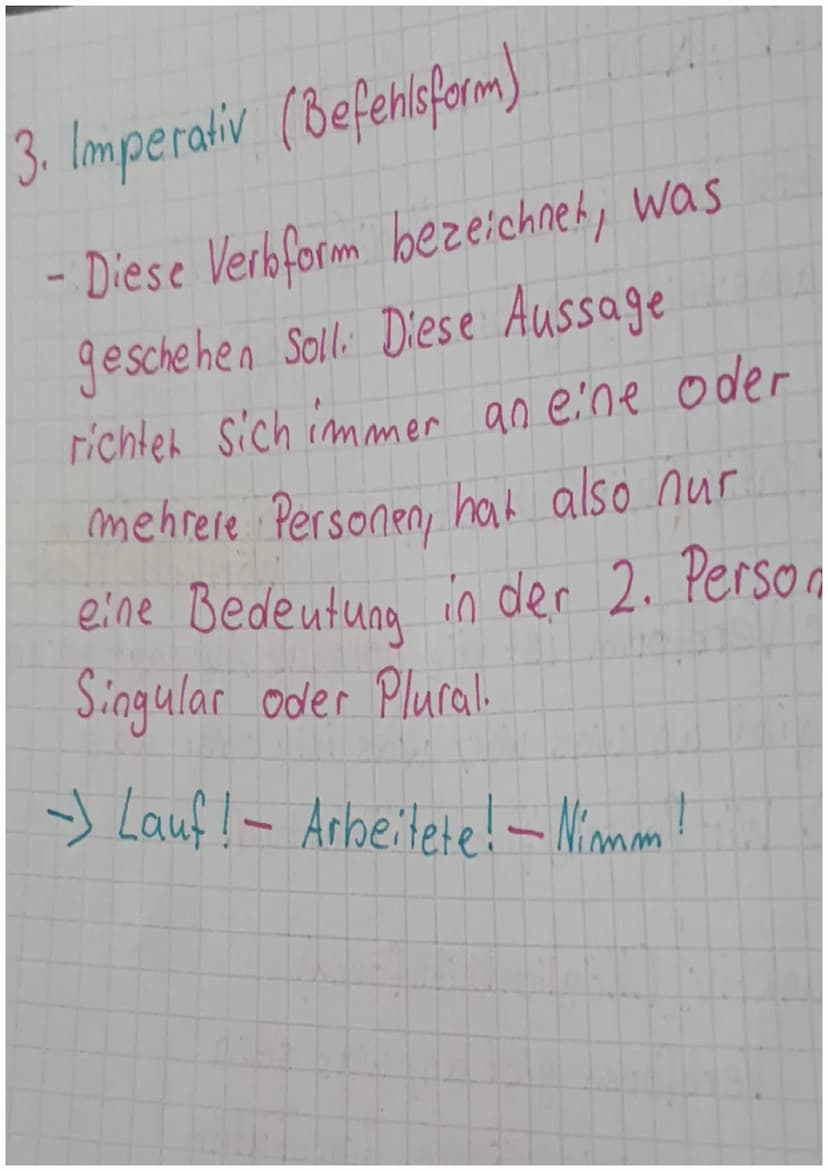 3. Imperativ (Befehlsform)
- Diese Verbform bezeichnet, was
geschehen soll. Diese Aussage
richtet sich immer an eine oder
mehrere Personen, hat also nur
eine Bedeutung in der 2. Person
Singular oder Plural.
-> Lauf! - Arbeitete! - Nimm!